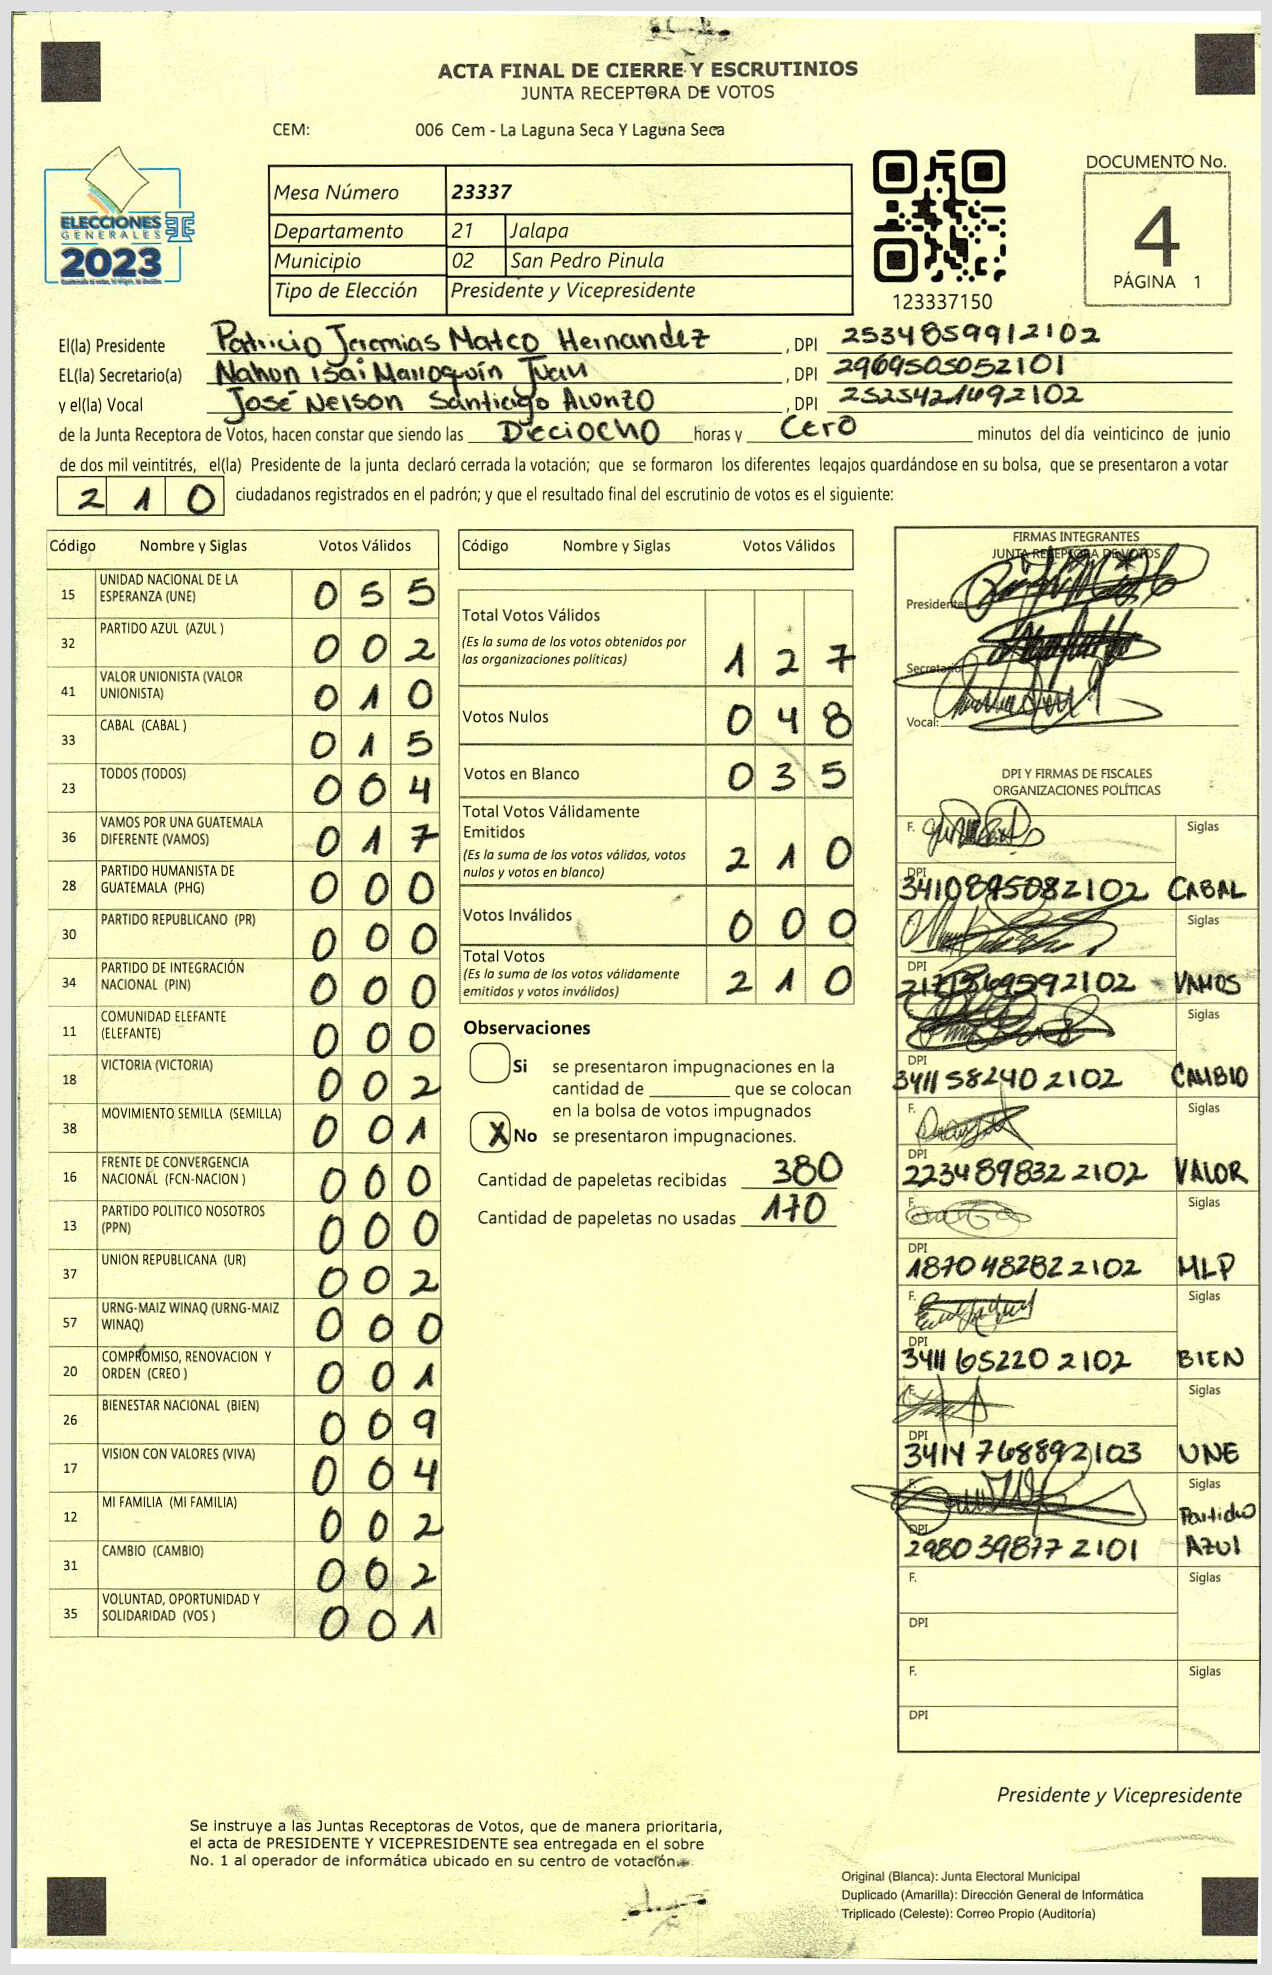 ACTA FINAL DE CIERRE Y ESCRUTINIOS
JUNTA RECEPTORA DE VOTOS
CEM: 006 Cem - La Laguna Seca Y Laguna Seca
ELECCIONES
GENERALES
2023
Mesa Número 23337
Departamento 21 Jalapa
Municipio 02 San Pedro Pinula
Tipo de Elección Presidente y Vicepresidente
123337150
DOCUMENTO No.
4
PÁGINA 1
El(la) Presidente Patricio Jeremias Mateo Hernandez, DPI 2534859912102
EL(la) Secretario(a) Nahun Isai Marroquín Juan, DPI 2969505052101
y el(la) Vocal José Nelson Santiago Alonzo, DPI 2525421492102
de la Junta Receptora de Votos, hacen constar que siendo las Dieciocho horas y Cero minutos del día veinticinco de junio
de dos mil veintitrés, el(la) Presidente de la junta declaró cerrada la votación; que se formaron los diferentes legajos guardándose en su bolsa, que se presentaron a votar
210 ciudadanos registrados en el padrón; y que el resultado final del escrutinio de votos es el siguiente:
Código Nombre y Siglas Votos Válidos
15 UNIDAD NACIONAL DE LA ESPERANZA (UNE) 055
32 PARTIDO AZUL (AZUL ) 002
41 VALOR UNIONISTA (VALOR UNIONISTA) 010
33 CABAL (CABAL ) 015
23 TODOS (TODOS) 004
36 VAMOS POR UNA GUATEMALA DIFERENTE (VAMOS) 017
28 PARTIDO HUMANISTA DE GUATEMALA (PHG) 000
30 PARTIDO REPUBLICANO (PR) 000
34 PARTIDO DE INTEGRACIÓN NACIONAL (PIN) 000
11 COMUNIDAD ELEFANTE (ELEFANTE) 000
18 VICTORIA (VICTORIA) 002
38 MOVIMIENTO SEMILLA (SEMILLA) 001
16 FRENTE DE CONVERGENCIA NACIONAL (FCN-NACION ) 000
13 PARTIDO POLITICO NOSOTROS (PPN) 000
37 UNION REPUBLICANA (UR) 002
57 URNG-MAIZ WINAQ (URNG-MAIZ WINAQ) 000
20 COMPROMISO, RENOVACION Y ORDEN (CREO ) 001
26 BIENESTAR NACIONAL (BIEN) 009
17 VISION CON VALORES (VIVA) 004
12 MI FAMILIA (MI FAMILIA) 002
31 CAMBIO (CAMBIO) 002
35 VOLUNTAD, OPORTUNIDAD Y SOLIDARIDAD (VOS ) 001
Código Nombre y Siglas Votos Válidos
Total Votos Válidos
(Es la suma de los votos obtenidos por
las organizaciones políticas) 127
Votos Nulos 048
Votos en Blanco 035
Total Votos Válidamente
Emitidos
(Es la suma de los votos válidos, votos
nulos y votos en blanco) 210
Votos Inválidos 000
Total Votos
(Es la suma de los votos válidamente
emitidos y votos inválidos) 210
Observaciones
Si se presentaron impugnaciones en la
cantidad de ________ que se colocan
en la bolsa de votos impugnados
X No se presentaron impugnaciones.
Cantidad de papeletas recibidas 380
Cantidad de papeletas no usadas 170
FIRMAS INTEGRANTES
JUNTA RECEPTORA DE VOTOS
Presidente:
Secretario:
Vocal:
DPI Y FIRMAS DE FISCALES
ORGANIZACIONES POLÍTICAS
F. Siglas
DPI 3410895082102 CABAL
F. Siglas
DPI 2102 VAMOS
Siglas
DPI 3411582402102 CAMBIO
F. Siglas
DPI 2234898322102 VALOR
F. Siglas
DPI 1870482822102 MLP
F. Siglas
DPI 3411652202102 BIEN
F. Siglas
DPI 3414768892103 UNE
F. Siglas
DPI 2980398772101 Partido Azul
F. Siglas
DPI
F. Siglas
DPI
Presidente y Vicepresidente
Se instruye a las Juntas Receptoras de Votos, que de manera prioritaria,
el acta de PRESIDENTE Y VICEPRESIDENTE sea entregada en el sobre
No. 1 al operador de informática ubicado en su centro de votación.
Original (Blanca): Junta Electoral Municipal
Duplicado (Amarilla): Dirección General de Informática
Triplicado (Celeste): Correo Propio (Auditoría)